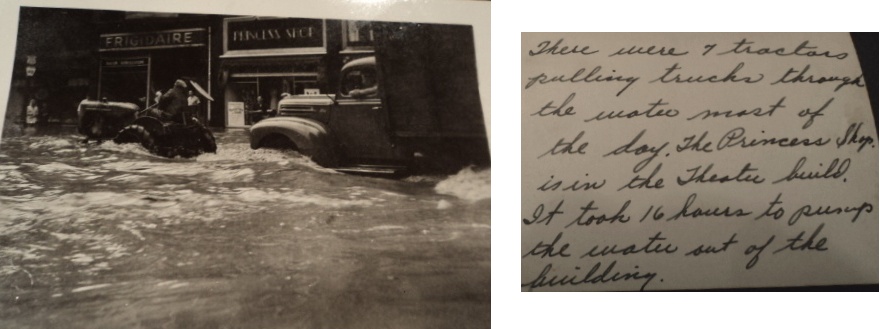 FRIGIDAIRE
PRINCESS SHOP
There were 7 tractors
pulling trucks through
the water most of
the day. The Princess Shop.
is in the Theater build.
It took 16 hours to pump
the water out of the
building.